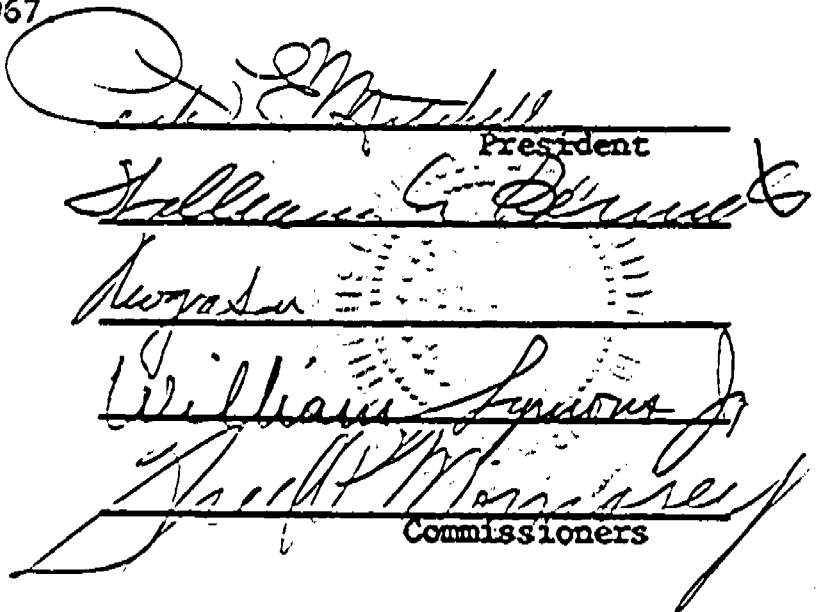 967
E Mitchell
President
William Bennett
William Symons Jr
Fred P Morrissey
Commissioners